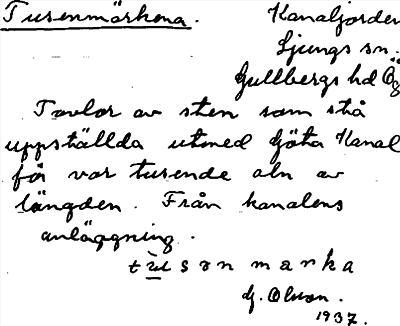 Tusenmärkena. Kanaljorden
Ljungs sn.
Gullbergs hd Ög
Tavlor av sten som stå
uppställda utmed Göta Kanal
för var tusende aln av
längden. Från kanalens
anläggning.
tùsənmarka
G. Olson.
1937.